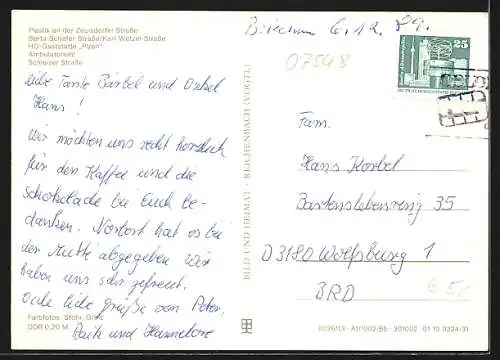 Plastik an der Zeulsdorfer Straße
Berta-Schäfer Straße/Karl-Wetzel-Straße
HO-Gaststätte „Plzen"
Ambulatorium
Schleizer Straße
6.12.89.
07548
25
Liebe Tante Bärbel und Onkel
Hans!
Wir möchten uns recht herzlich
für den Kaffee und die
Schokolade bei Euch be-
danken. hat es bei
der Mutti abgegeben Wir
haben uns sehr gefreut.
liebe Grüße von Peter,
Maik und Hannelore
Farbfotos: Stöhr, Greiz
DDR 0,20 M
BILD UND HEIMAT · REICHENBACH (VOGTL)
Fam.
Hans Korbel
Bartenslebenring 35
D 3180 Wolfsburg 1
BRD
01 10 0324/31